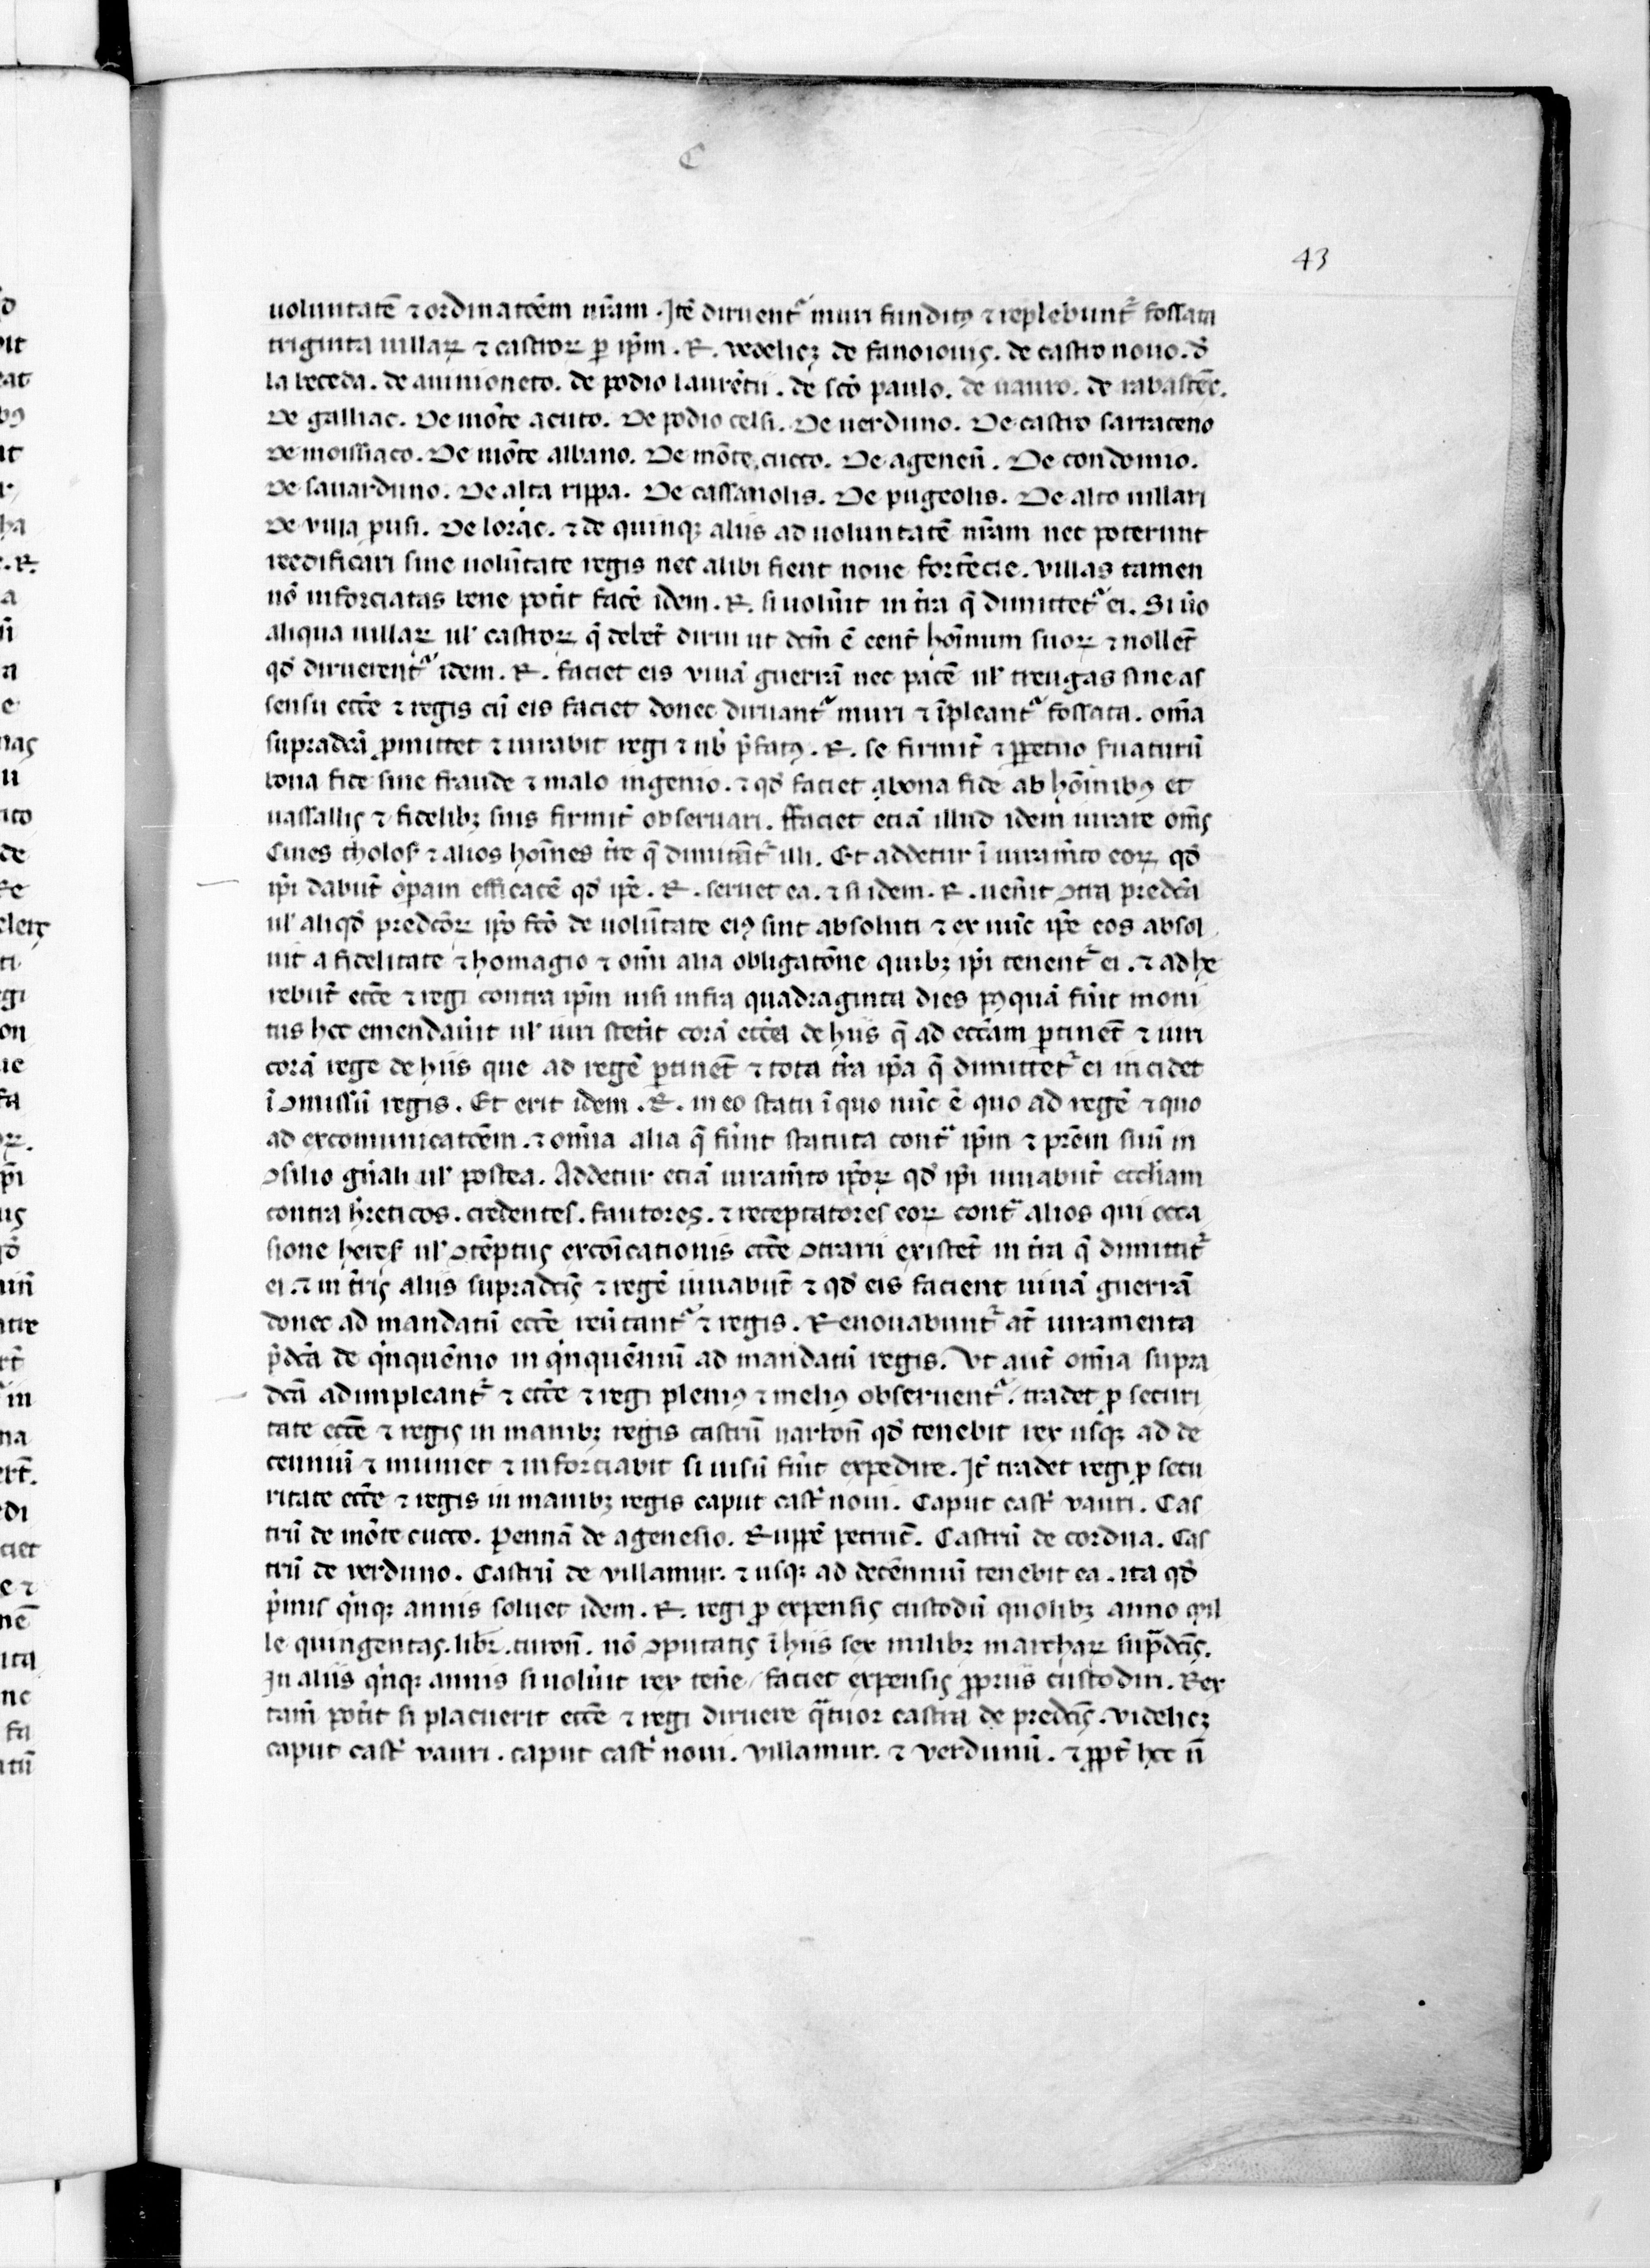 43
uoluntatē ⁊ ordinatōem nr̄am. Itē diruentᷣ muri funditꝰ ⁊ replebuntᷣ fossata
triginta uillaꝝ ⁊ castroꝝ ꝑ ip̄m .R. vedelicꝫ de fanoiouis. de castro nouo. đ
la beceda. de auinioneto. de podio laurētii. de sc̄o paulo. de uauro. de rabastēs.
De galliac. De mōte acuto. De podio celsi. De uerduno. De castro sarraceno
De moissiaco. De mōte albano. De mōte cucco. De agenen̄. De condomio.
De sauarduno. De alta rippa. De cassanolis. De pugeolis. De alto uillari
De villa pusi. De lorac. ⁊ de quinqꝫ aliis ad uoluntatē nr̄am nec poterunt
reedificari sine uolūtate regis nec alibi fient noue fortēcie. villas tamen
nō inforciatas bene pot̄it facē idem .R. si uolūit in t̄ra q̄ dimittetᷣ ei. Si ūo
aliqua uillaꝝ ul̛ castroꝝ q̄ debēt dirui ut dc̄m ē eēnt hoīnum suoꝝ ⁊ nollēt
qđ diruerentᷣ idem .R. faciet eis viuā guerrā nec pacē ul̛ treugas sine as
sensu ecc̄e ⁊ regis cū eis faciet donec diruantᷣ muri ⁊ īpleantᷣ fossata. om̄ia
supradc̄a ꝓmittet ⁊ iurabit regi ⁊ nb̄ p̄fatꝰ .R. se firmit̄ ⁊ ꝑpetuo seruaturū
bona fide sine fraude ⁊ malo ingenio. ⁊ qđ faciet abona fide ab hoīnibꝰ et
uassallis ⁊ fidelibꝫ suis firmit̄ obseruari. ffaciet eciā illud idem iurare om̄s
Ciues tholoſ ⁊ alios hoīnes t̄re q̄ dimittūtᷣ illi. Et addetur ī iuramīto eoꝝ qđ
ip̄i dabūt opam efficacē qđ ip̄e .R. seruet ea. ⁊ si idem .R. uen̄it ꝯtra predc̄a
ul̛ aliqđ predcōꝝ ip̄o fc̄o de uolūtate eiꝰ sint absoluti ⁊ ex nūc ip̄e eos absol
uit a fidelitate ⁊ homagio ⁊ omī alia obligatōne quibꝫ ip̄i tenentᷣ ei. ⁊ adhe
rebūt ecc̄e ⁊ regi contra ip̄m nisi infra quadraginta dies pꝰquā fūit moni
tus hec emendauit ul̛ iuri stet̄it corā ecc̄ia de hiis q̄ ad ecc̄am ꝑtinēt ⁊ iuri
corā rege de hiis que ad regē ꝑtinēt ⁊ tota t̄ra ip̄a q̄ dimittetᷣ ei incidet
ī ꝯmissū regis. Et erit idem .R. in eo statu ī quo nūc ē quo ad regē ⁊ quo
ad excomunicatōem. ⁊ om̄ia alia q̄ fūnt statuta contᷓ ip̄m ⁊ pr̄em suū in
ꝯsilio gn̄ali ul̛ postea. Addetur eciā iuramīto ip̄oꝝ qđ ip̄i iuuabūt eccl̄iam
contra h̄reticos. credentes. fautores. ⁊ receptatores eoꝝ contᷓ alios qui occa
sione hereſ ul̛ ꝯtēptus excoīcationis ecc̄e ꝯtrarii existēt in t̄ra q̄ dimittitᷣ
ei. ⁊ in t̄ris aliis supradc̄is ⁊ regē iuuabūt ⁊ qđ eis facient uiuā guerrā
donec ad mandatū ecc̄e reūtantᷣ ⁊ regis. Renouabuntᷣ at̄ iuramenta
p̄dc̄a de qͥnquēnio in qͥnquēniū ad mandatū regis. Ut aut̄ om̄ia supra
dc̄a adimpleantᷣ ⁊ ecc̄e ⁊ regi pleniꝰ ⁊ meliꝰ obseruentᷣ. tradet ꝓ securi
tate ecc̄e ⁊ regis in manibꝫ regis castrū narbon̄ qđ tenebit rex usqꝫ ad de
cenniū ⁊ muniet ⁊ inforciabit si uisū fūit expedire. It̄ tradet regi ꝓ secu
ritate ecc̄e ⁊ regis in manibꝫ regis caput castͥ noui. Caput castͥ vauri. Cas
trū de mōte cucco. Pennā de agenesio. Ruppē petruc̄. Castrū de cordua. Cas
trū de verduno. Castrū de villamur. ⁊ usqꝫ ad decēnniū tenebit ea. ita qđ
p̄mis qͥnqꝫ annis soluet idem .R. regi ꝓ expensis custodū quolibꝫ anno mil
le quingentas. libr̄. turon̄. nō ꝯputatis ī hiis sex milibꝫ marchaꝝ sup̄dc̄is.
In aliis qͥnqꝫ annis si uolūit rex ten̄e / faciet expensis ꝓpriis custodiri. Rex
tam̄ pot̄it si placuerit ecc̄e ⁊ regi diruere qᷓtuor castra de predc̄is. videlicꝫ
caput castͥ vauri. caput castͥ noui. villamur. ⁊ verdunū. ⁊ ꝓpt̄ hec n̄